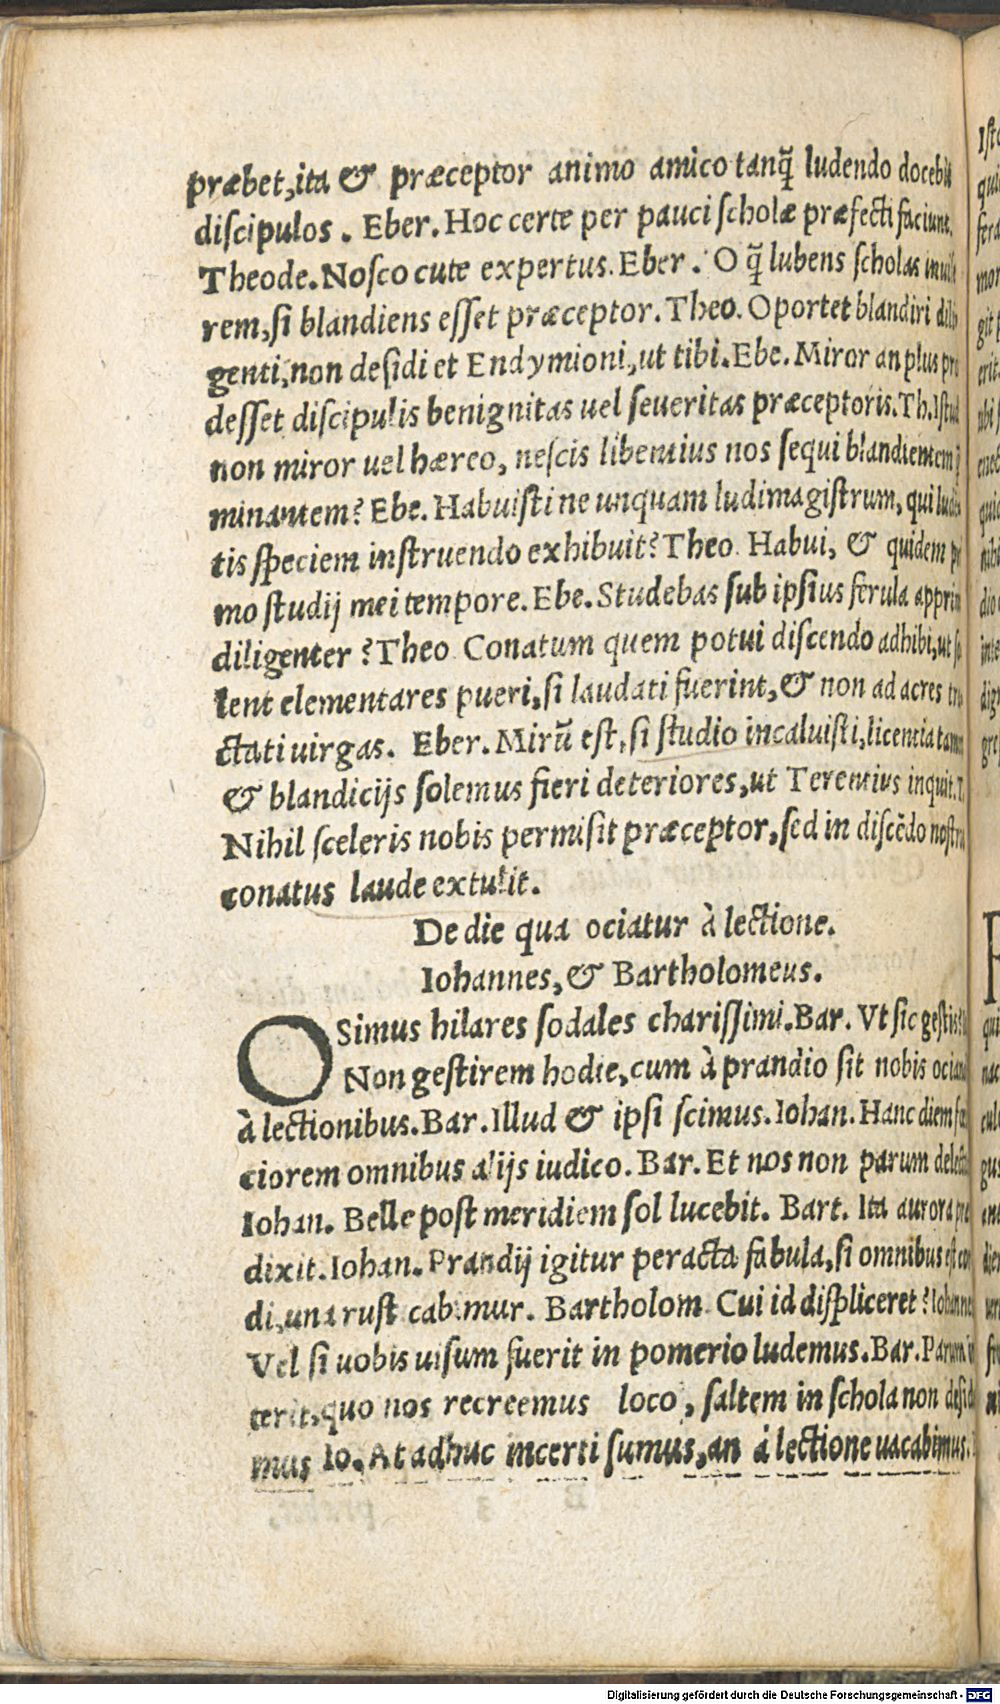 præbet, ita & præceptor animo amico tanq̃ ludendo docebit
discipulos. Eber. Hoc certe per pauci scholæ præfecti faciunt.
Theode. Nosco cute expertus. Eber. O q̃ lubens scholas
rem, si blandiens esset præceptor. Theo. Oportet blandiri dili
genti, non desidi et Endymioni, ut tibi. Ebe. Miror an plus pro
desset discipulis benignitas uel seueritas præceptoris. Th. Istud
non miror uel hæreo, nescis libentius nos sequi blandientem q̃
minantem? Ebe. Habuisti ne unquam ludimagistrum, qui luden
tis speciem instruendo exhibuit? Theo. Habui, & quidem pri
mo studij mei tempore. Ebe. Studebas sub ipsius ferula apprime
diligenter? Theo Conatum quem potui discendo adhibi, ut so
lent elementares pueri, si laudati fuerint, & non ad acres tra
ctati uirgas. Eber. Mirũ est, si studio incaluisti, licentia tamen
& blandicijs solemus fieri deteriores, ut Terentius inquit. T.
Nihil sceleris nobis permisit præceptor, sed in discẽdo nostros
conatus laude extulit.
De die qua ociatur à lectione.
Iohannes, & Bartholomeus.
OSimus hilares sodales charissimi. Bar. Vt sic gestis?
Non gestirem hodie, cum à prandio sit nobis
à lectionibus. Bar. Illud & ipsi scimus. Iohan. Hanc diem fœ
ciorem omnibus alijs iudico. Bar. Et nos non parum delectat
Iohan. Belle post meridiem sol lucebit. Bart. Ita aurora præ
dixit. Iohan. Prandij igitur peracta fabula, si omnibus est cor
di, una rusticabimur. Bartholom. Cui id displiceret? Iohannes
Vel si uobis uisum fuerit in pomerio ludemus. Bar. Parum
terit, quo nos recreemus loco, saltem in schola non desidea
mus Io. At adhuc incerti sumus, an à lectione uacabimus.
Digitalisierung gefördert durch die Deutsche Forschungsgemeinschaft - DFG